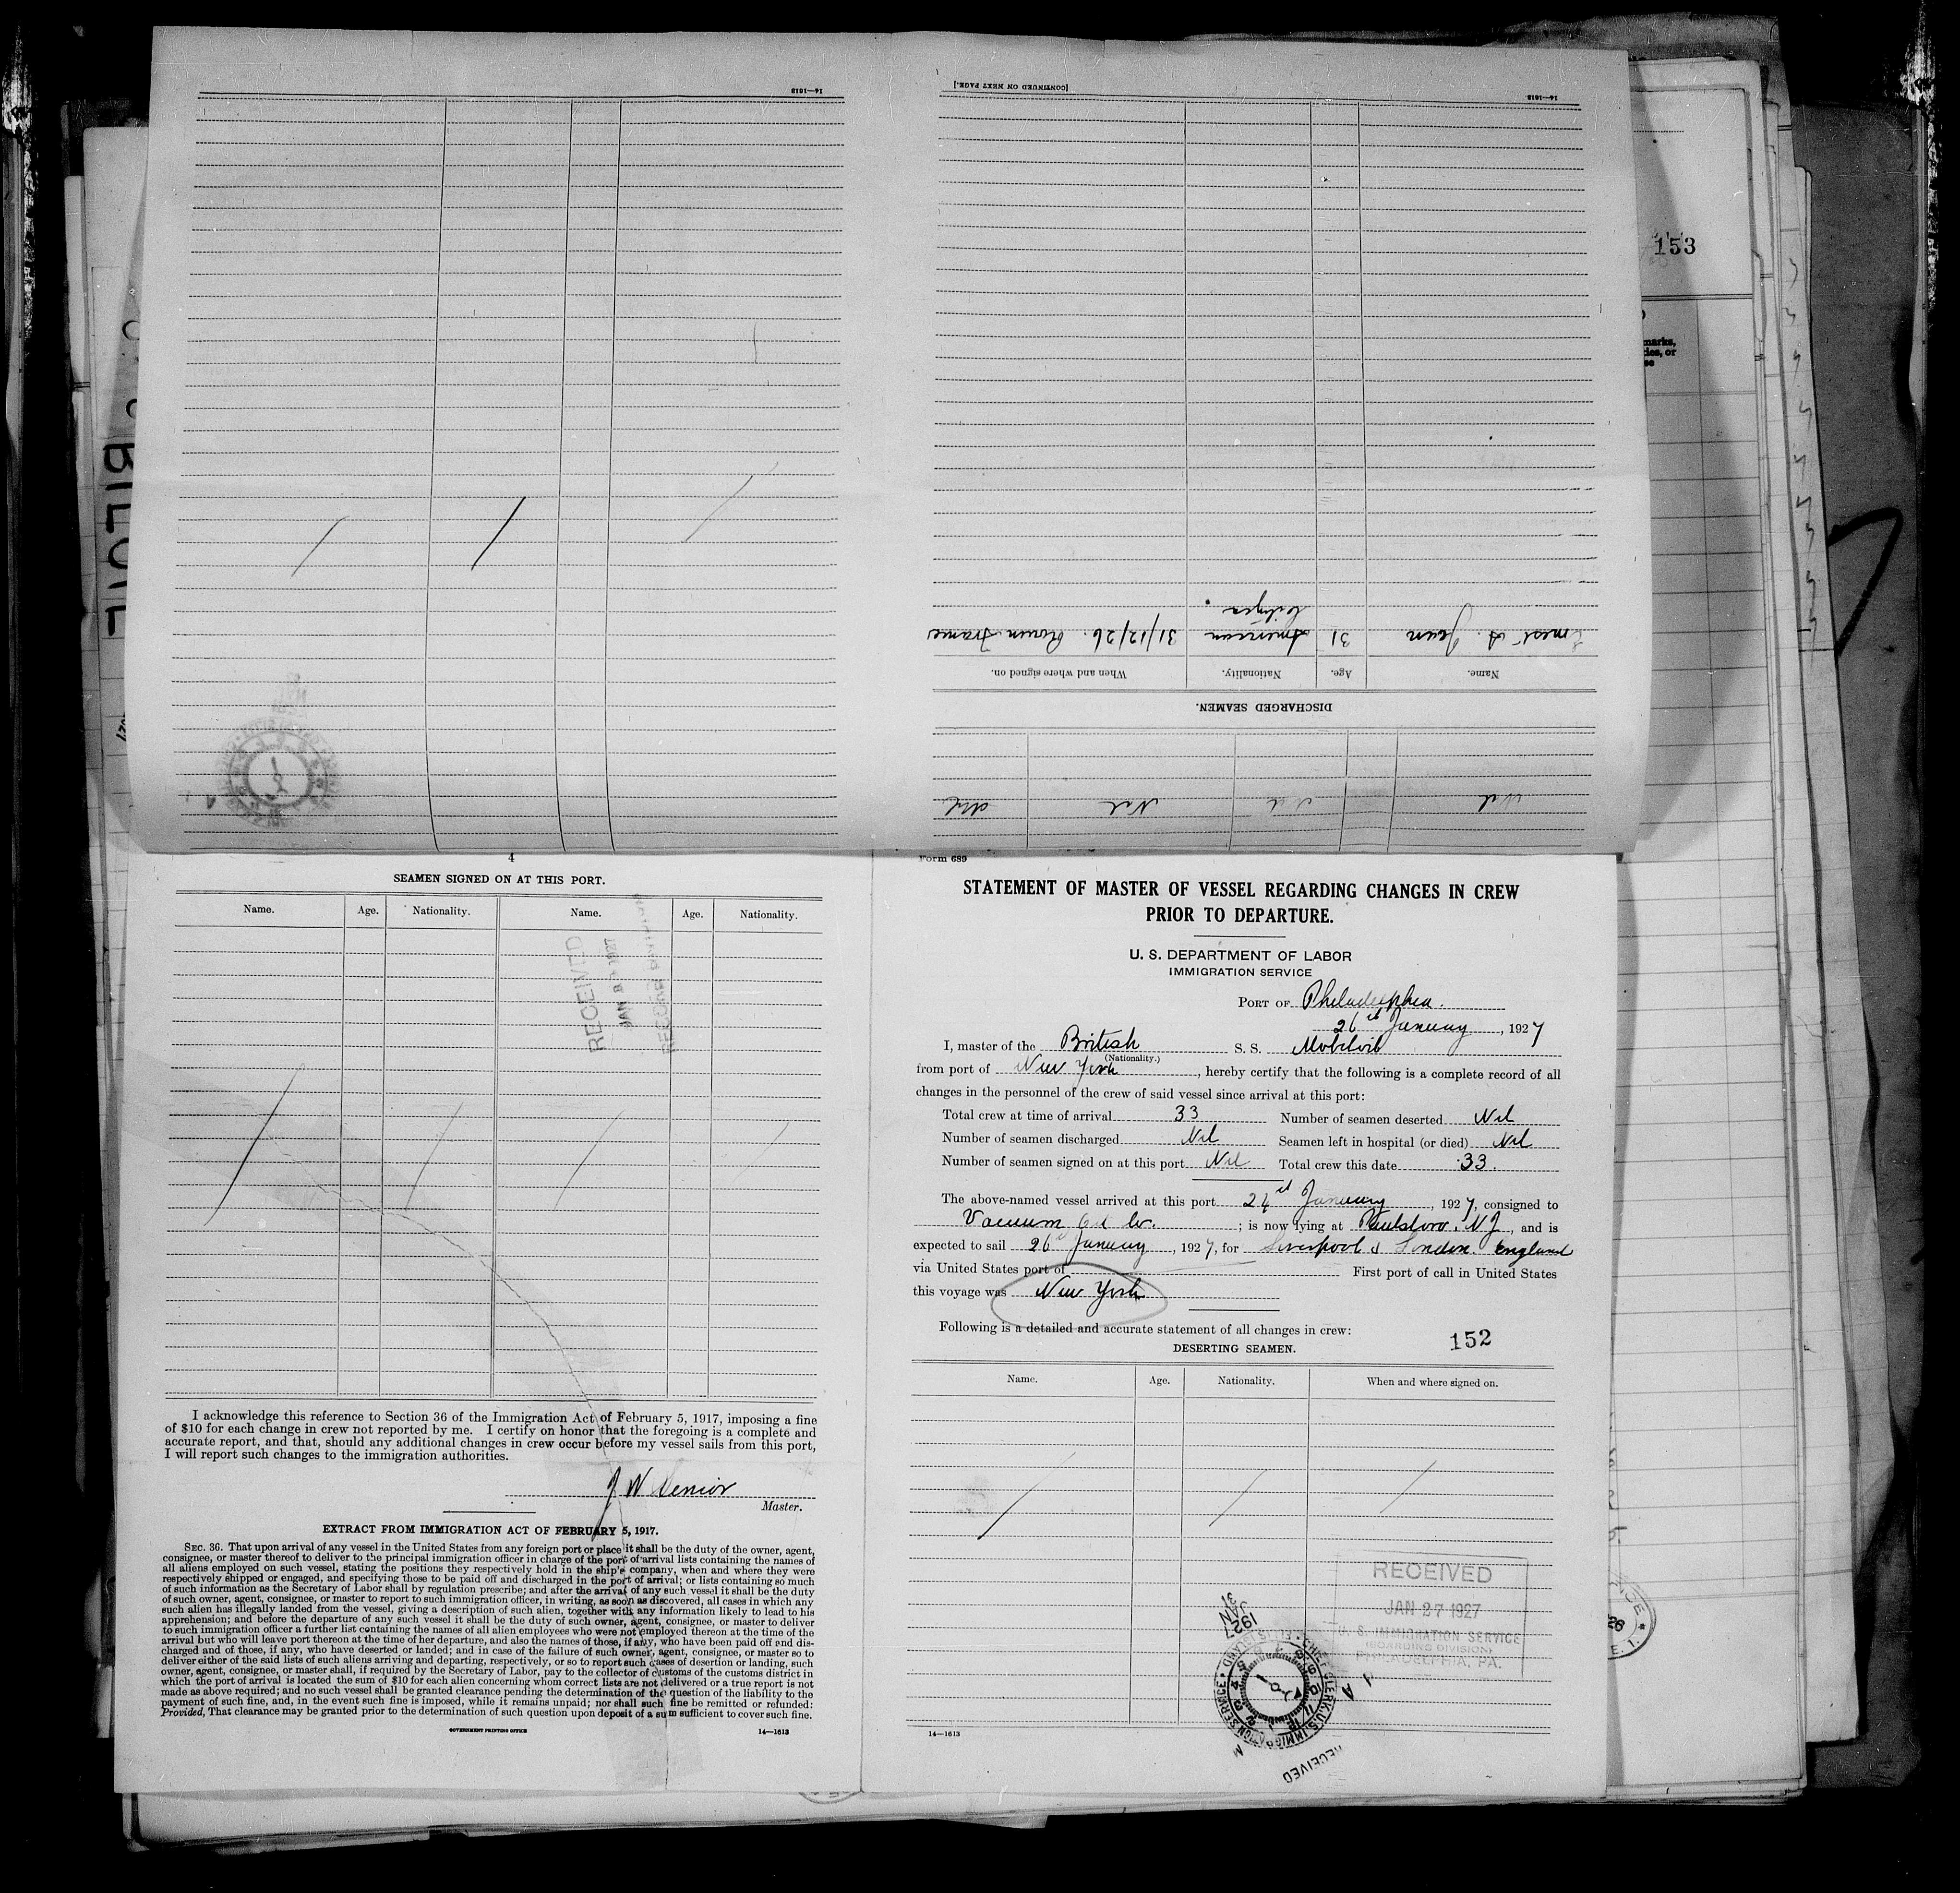 14—1613
[CONTINUED ON NEXT PAGE.]
14—1613
DISCHARGED SEAMEN.
Name. Age. Nationality. When and where signed on.
Ernest A. Jean 31 American 31/12/26. Rouen France
Citizen
Nil Nil Nil Nil
153
4
SEAMEN SIGNED ON AT THIS PORT.
Name. Age. Nationality. Name. Age. Nationality.
RECEIVED
I acknowledge this reference to Section 36 of the Immigration Act of February 5, 1917, imposing a fine
of $10 for each change in crew not reported by me. I certify on honor that the foregoing is a complete and
accurate report, and that, should any additional changes in crew occur before my vessel sails from this port,
I will report such changes to the immigration authorities.
J W Senior
Master.
EXTRACT FROM IMMIGRATION ACT OF FEBRUARY 5, 1917.
SEC. 36. That upon arrival of any vessel in the United States from any foreign port or place it shall be the duty of the owner, agent,
consignee, or master thereof to deliver to the principal immigration officer in charge of the port of arrival lists containing the names of
all aliens employed on such vessel, stating the positions they respectively hold in the ship's company, when and where they were
respectively shipped or engaged, and specifying those to be paid off and discharged in the port of arrival; or lists containing so much
of such information as the Secretary of Labor shall by regulation prescribe; and after the arrival of any such vessel it shall be the duty
of such owner, agent, consignee, or master to report to such immigration officer, in writing, as soon as discovered, all cases in which any
such alien has illegally landed from the vessel, giving a description of such alien, together with any information likely to lead to his
apprehension; and before the departure of any such vessel it shall be the duty of such owner, agent, consignee, or master to deliver
to such immigration officer a further list containing the names of all alien employees who were not employed thereon at the time of the
arrival but who will leave port thereon at the time of her departure, and also the names of those, if any, who have been paid off and dis-
charged and of those, if any, who have deserted or landed; and in case of the failure of such owner, agent, consignee, or master so to
deliver either of the said lists of such aliens arriving and departing, respectively, or so to report such cases of desertion or landing, such
owner, agent, consignee, or master shall, if required by the Secretary of Labor, pay to the collector of customs of the customs district in
which the port of arrival is located the sum of $10 for each alien concerning whom correct lists are not delivered or a true report is not
made as above required; and no such vessel shall be granted clearance pending the determination of the question of the liability to the
payment of such fine, and, in the event such fine is imposed, while it remains unpaid; nor shall such fine be remitted or refunded:
Provided, That clearance may be granted prior to the determination of such question upon deposit of a sum sufficient to cover such fine.
GOVERNMENT PRINTING OFFICE 14—1613
Form 689
STATEMENT OF MASTER OF VESSEL REGARDING CHANGES IN CREW
PRIOR TO DEPARTURE.
U. S. DEPARTMENT OF LABOR
IMMIGRATION SERVICE
PORT OF Philadelphia.
26th January, 1927
I, master of the British S. S. Mobiloil
(Nationality.)
from port of New York, hereby certify that the following is a complete record of all
changes in the personnel of the crew of said vessel since arrival at this port:
Total crew at time of arrival 33 Number of seamen deserted Nil
Number of seamen discharged Nil Seamen left in hospital (or died) Nil
Number of seamen signed on at this port Nil Total crew this date 33.
The above-named vessel arrived at this port January, 1927, consigned to
Vacuum Oil Co.; is now lying at Paulsboro, N J, and is
expected to sail 26th January, 1927, for Liverpool & London. England
via United States port of First port of call in United States
this voyage was New York
Following is a detailed and accurate statement of all changes in crew:
152
DESERTING SEAMEN.
Name. Age. Nationality. When and where signed on.
RECEIVED
JAN 27 1927
U. S. IMMIGRATION SERVICE
(BOARDING DIVISION)
PHILADELPHIA, PA.
1927
JAN
31
CHIEF CLERK, U.S. IMMIGRATION SERVICE
RECEIVED
14—1613